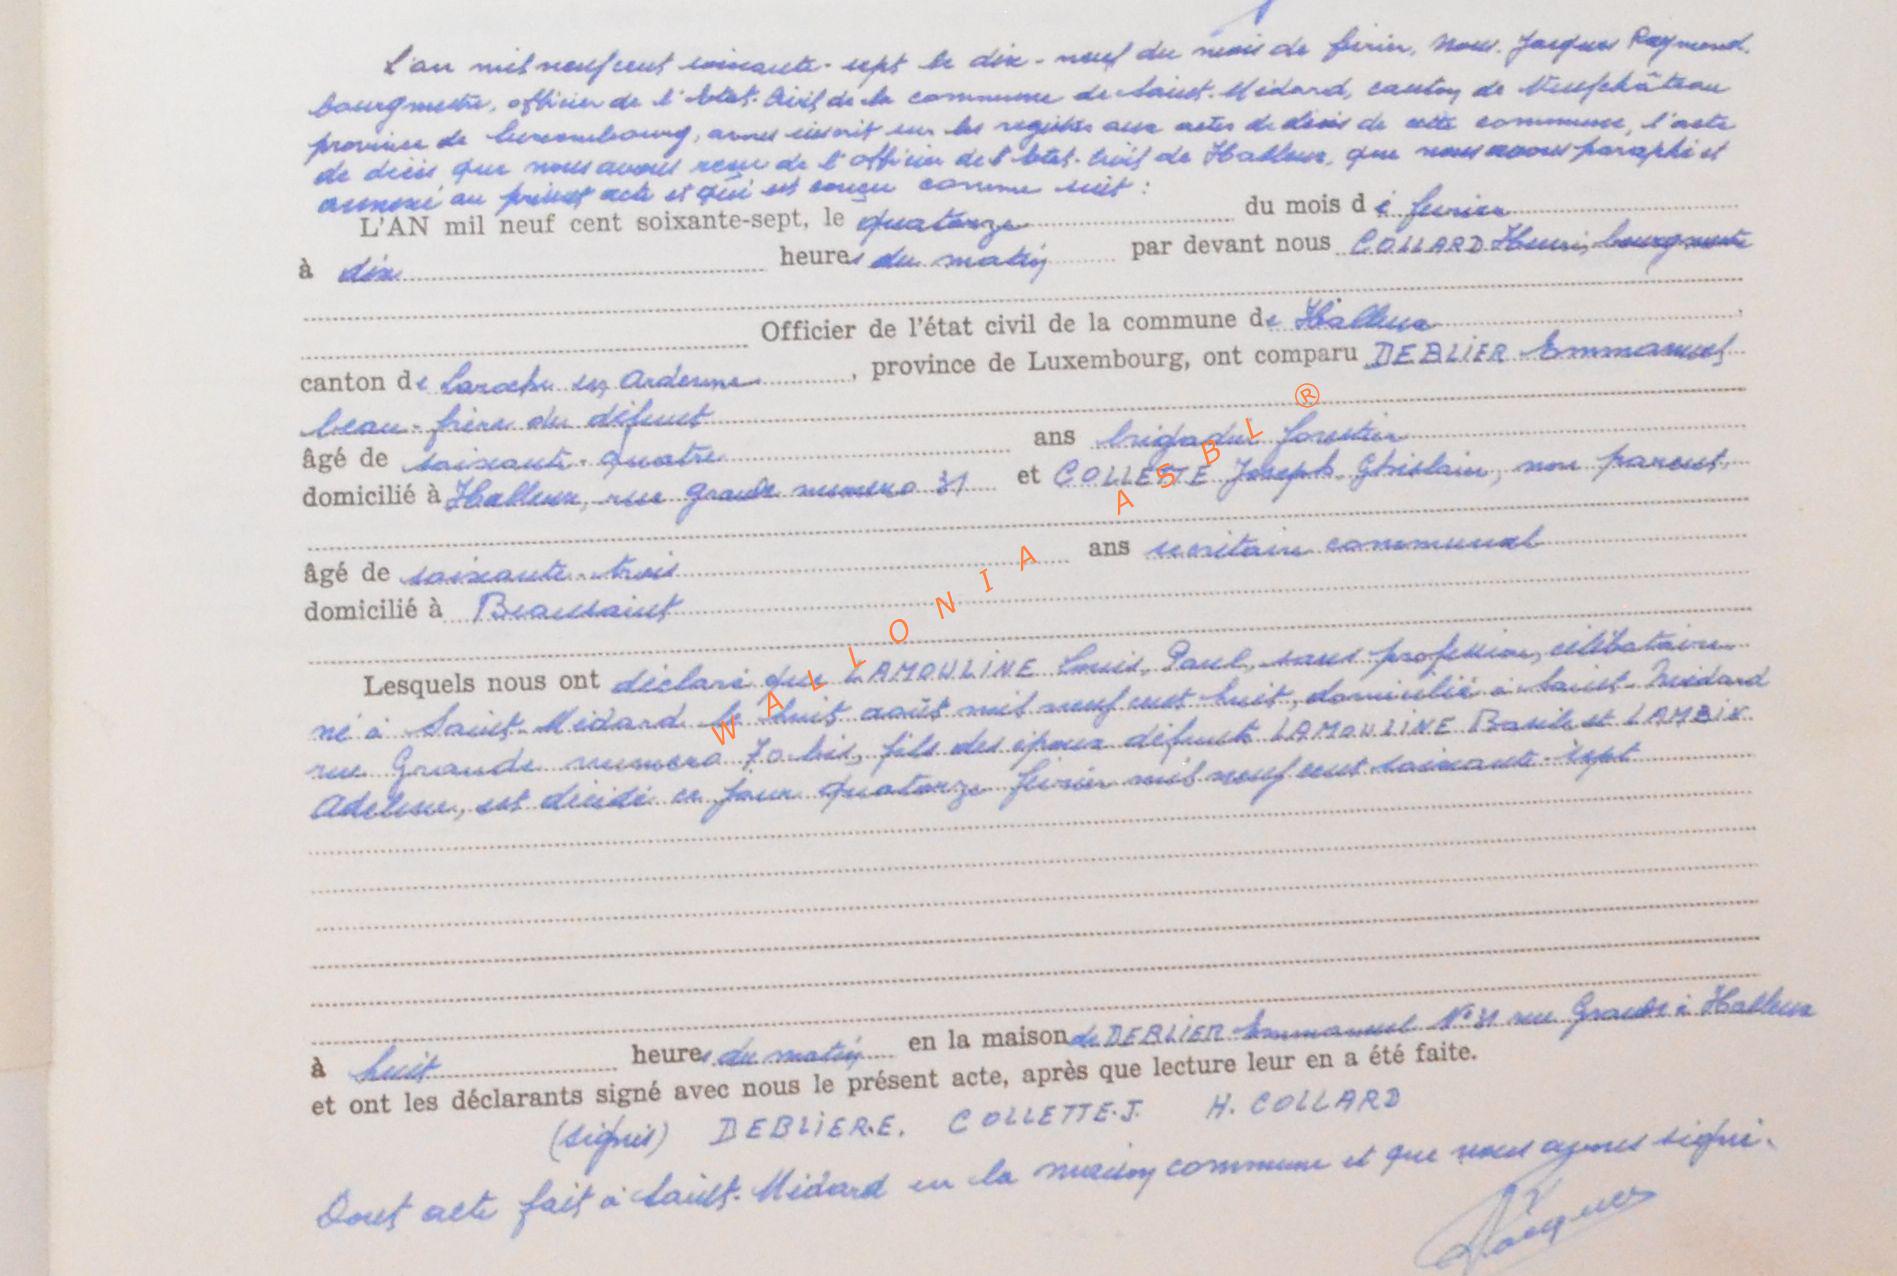 L'an mil neuf cent soixante-sept le dix-neuf du mois de février, Nous, Jacques Raymond,
bourgmestre, officier de l'état-civil de la commune de Saint-Médard, canton de Neufchâteau
province de Luxembourg, avons inscrit sur les registres aux actes de décès de cette commune, l'acte
de décès que nous avons reçu de l'officier de l'état-civil de Halleux, que nous avons paraphé et
annexé au présent acte et qui est conçu comme suit :
L'AN mil neuf cent soixante-sept, le quatorze du mois de février
à dix heures du matin par devant nous COLLARD Henri, bourgmestre
Officier de l'état civil de la commune de Halleux,
canton de Laroche en Ardenne, province de Luxembourg, ont comparu DEBLIER Emmanuel
beau-frère du défunt
âgé de soixante-quatre ans brigadier forestier
domicilié à Halleux, rue Grande numéro 31 et COLLETTE Joseph, Ghislain, non parent,
âgé de soixante-trois ans secrétaire communal
domicilié à Beausaint
Lesquels nous ont déclaré que LAMOULINE Louis, Paul, sans profession, célibataire
né à Saint-Médard le huit août mil neuf cent huit, domicilié à Saint-Médard
rue Grande numéro 70 bis, fils des époux défunts LAMOULINE Basile et LAMBIN
Adeline, est décédé ce jour quatorze février mil neuf cent soixante-sept
à huit heures du matin en la maison de DEBLIER Emmanuel N° 31 rue Grande à Halleux
et ont les déclarants signé avec nous le présent acte, après que lecture leur en a été faite.
(signés) DEBLIER.E. COLLETTE.J. H. COLLARD
Dont acte fait à Saint-Médard en la maison commune et que nous avons signé.
Jacques
WALLONIA ASBL ®